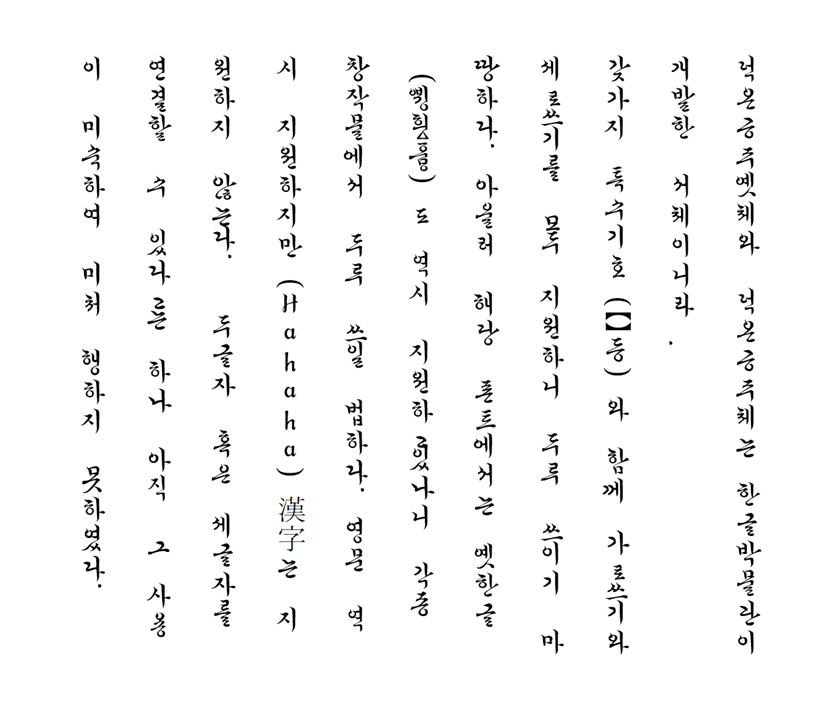 덕온공주옛체와 덕온공주체는 한글박물관이
개발한 서체이니라 .
갖가지 특수기호(【】등)와 함께 가로쓰기와
세로쓰기를 모두 지원하니 두루 쓰이기 마
땅하다. 아울러 해당 폰트에서는 옛한글
도 역시 각종
창작물에서 두루 쓰일 법하다. 영문 역
시 지원하지만 (Hahaha) 漢字는 지
원하지 않는다. 두글자 혹은 세글자를
연결할 수 하나 아직 그 사용
이 미숙하여 미처 행하지 못하였다.